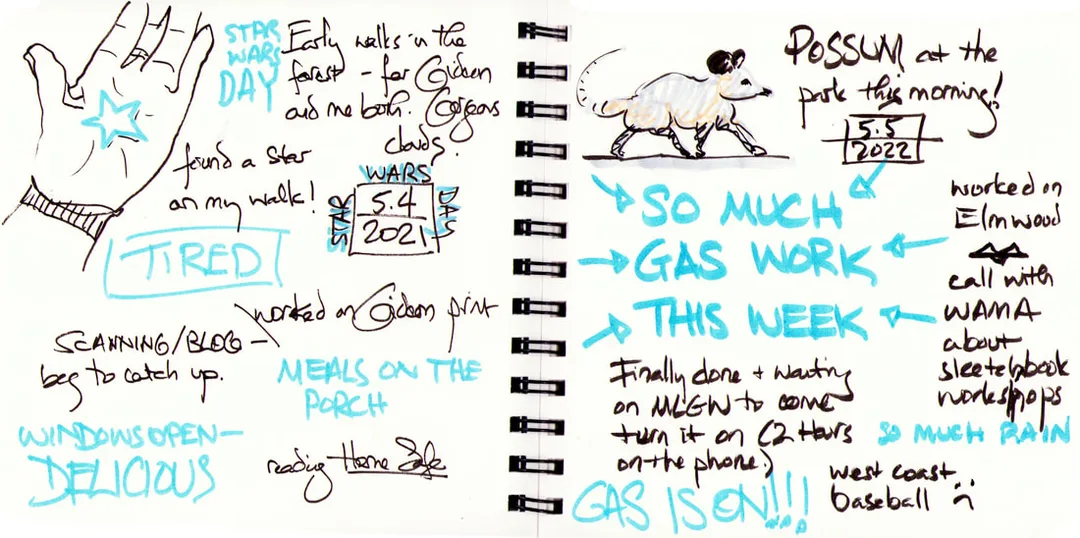 STAR
WARS
DAY
Early walks in the
forest - for Gideon
and me both. Gorgeous
clouds.
found a star
on my walk!
WARS
STAR
5.4
2021
DAY
TIRED
worked on Gideon print
SCANNING/BLOG -
beg to catch up.
MEALS ON THE
PORCH
WINDOWS OPEN -
DELICIOUS
reading Home Safe
POSSUM at the
park this morning!
5.5
2022
SO MUCH
GAS WORK
THIS WEEK
worked on
Elmwood
call with
WAMA
about
sketchbook
workshops
Finally done + waiting
on MLGW to come
turn it on (2 Hours
on the phone.)
SO MUCH RAIN
GAS IS ON!!!
west coast
baseball :(